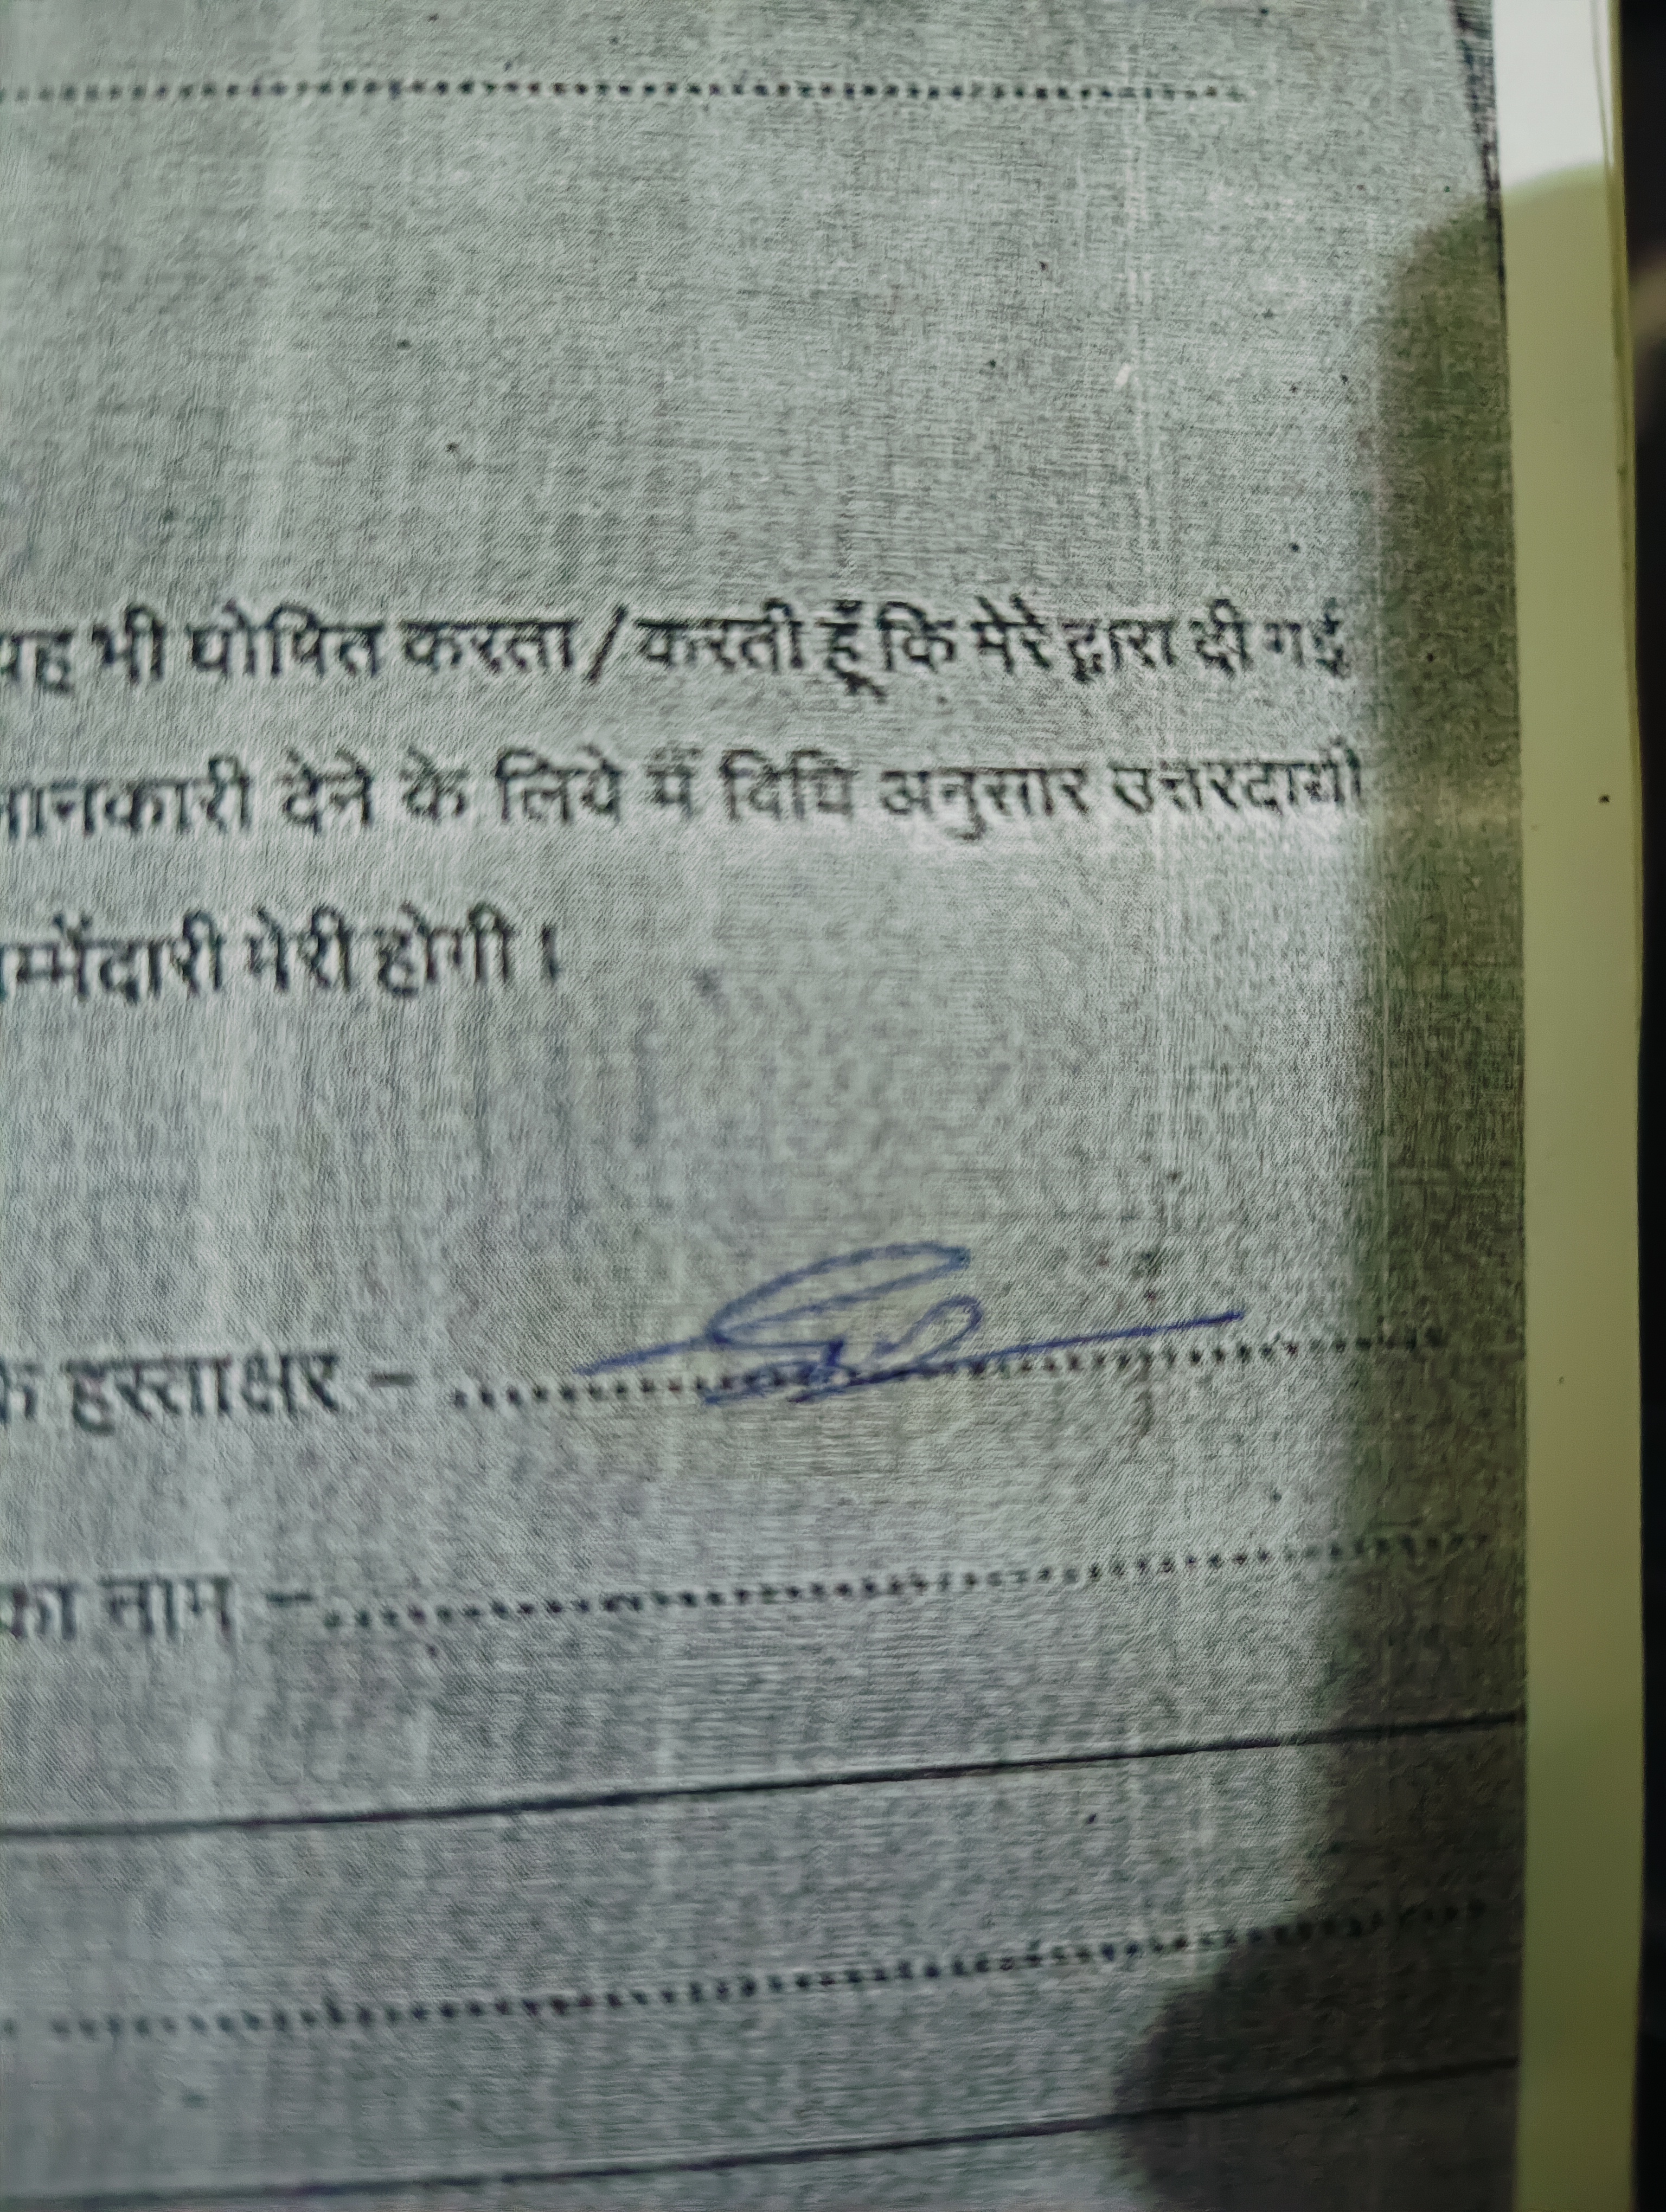 यह भी घोषित करता / करती हूँ कि मेरे द्वारा दी गई
जानकारी देने के लिये मैं विधि अनुसार उत्तरदायी
म्मेंदारी मेरी होगी।
के हस्ताक्षर -
का नाम -